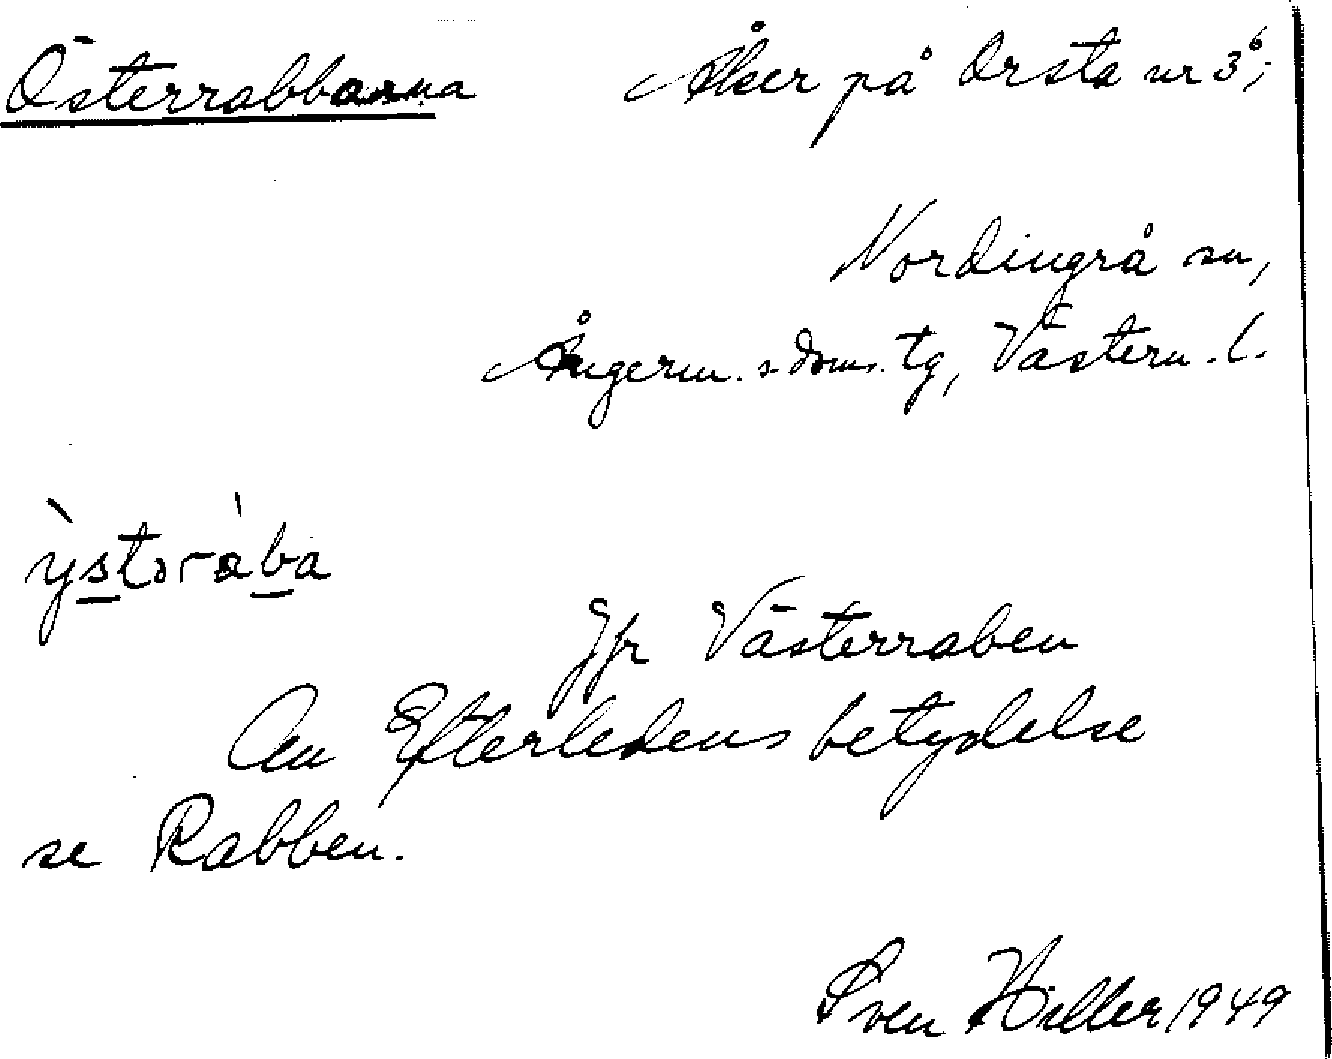 Österrabbarna Åker på Orsta nr 3⁶;
Nordingrå sn,
Ångerm. s. doms. tg, Västern. l.
ỳstəràba
Jfr Västerraben
Om Efterledens betydelse
se Rabben.
Sven Hiller 1949